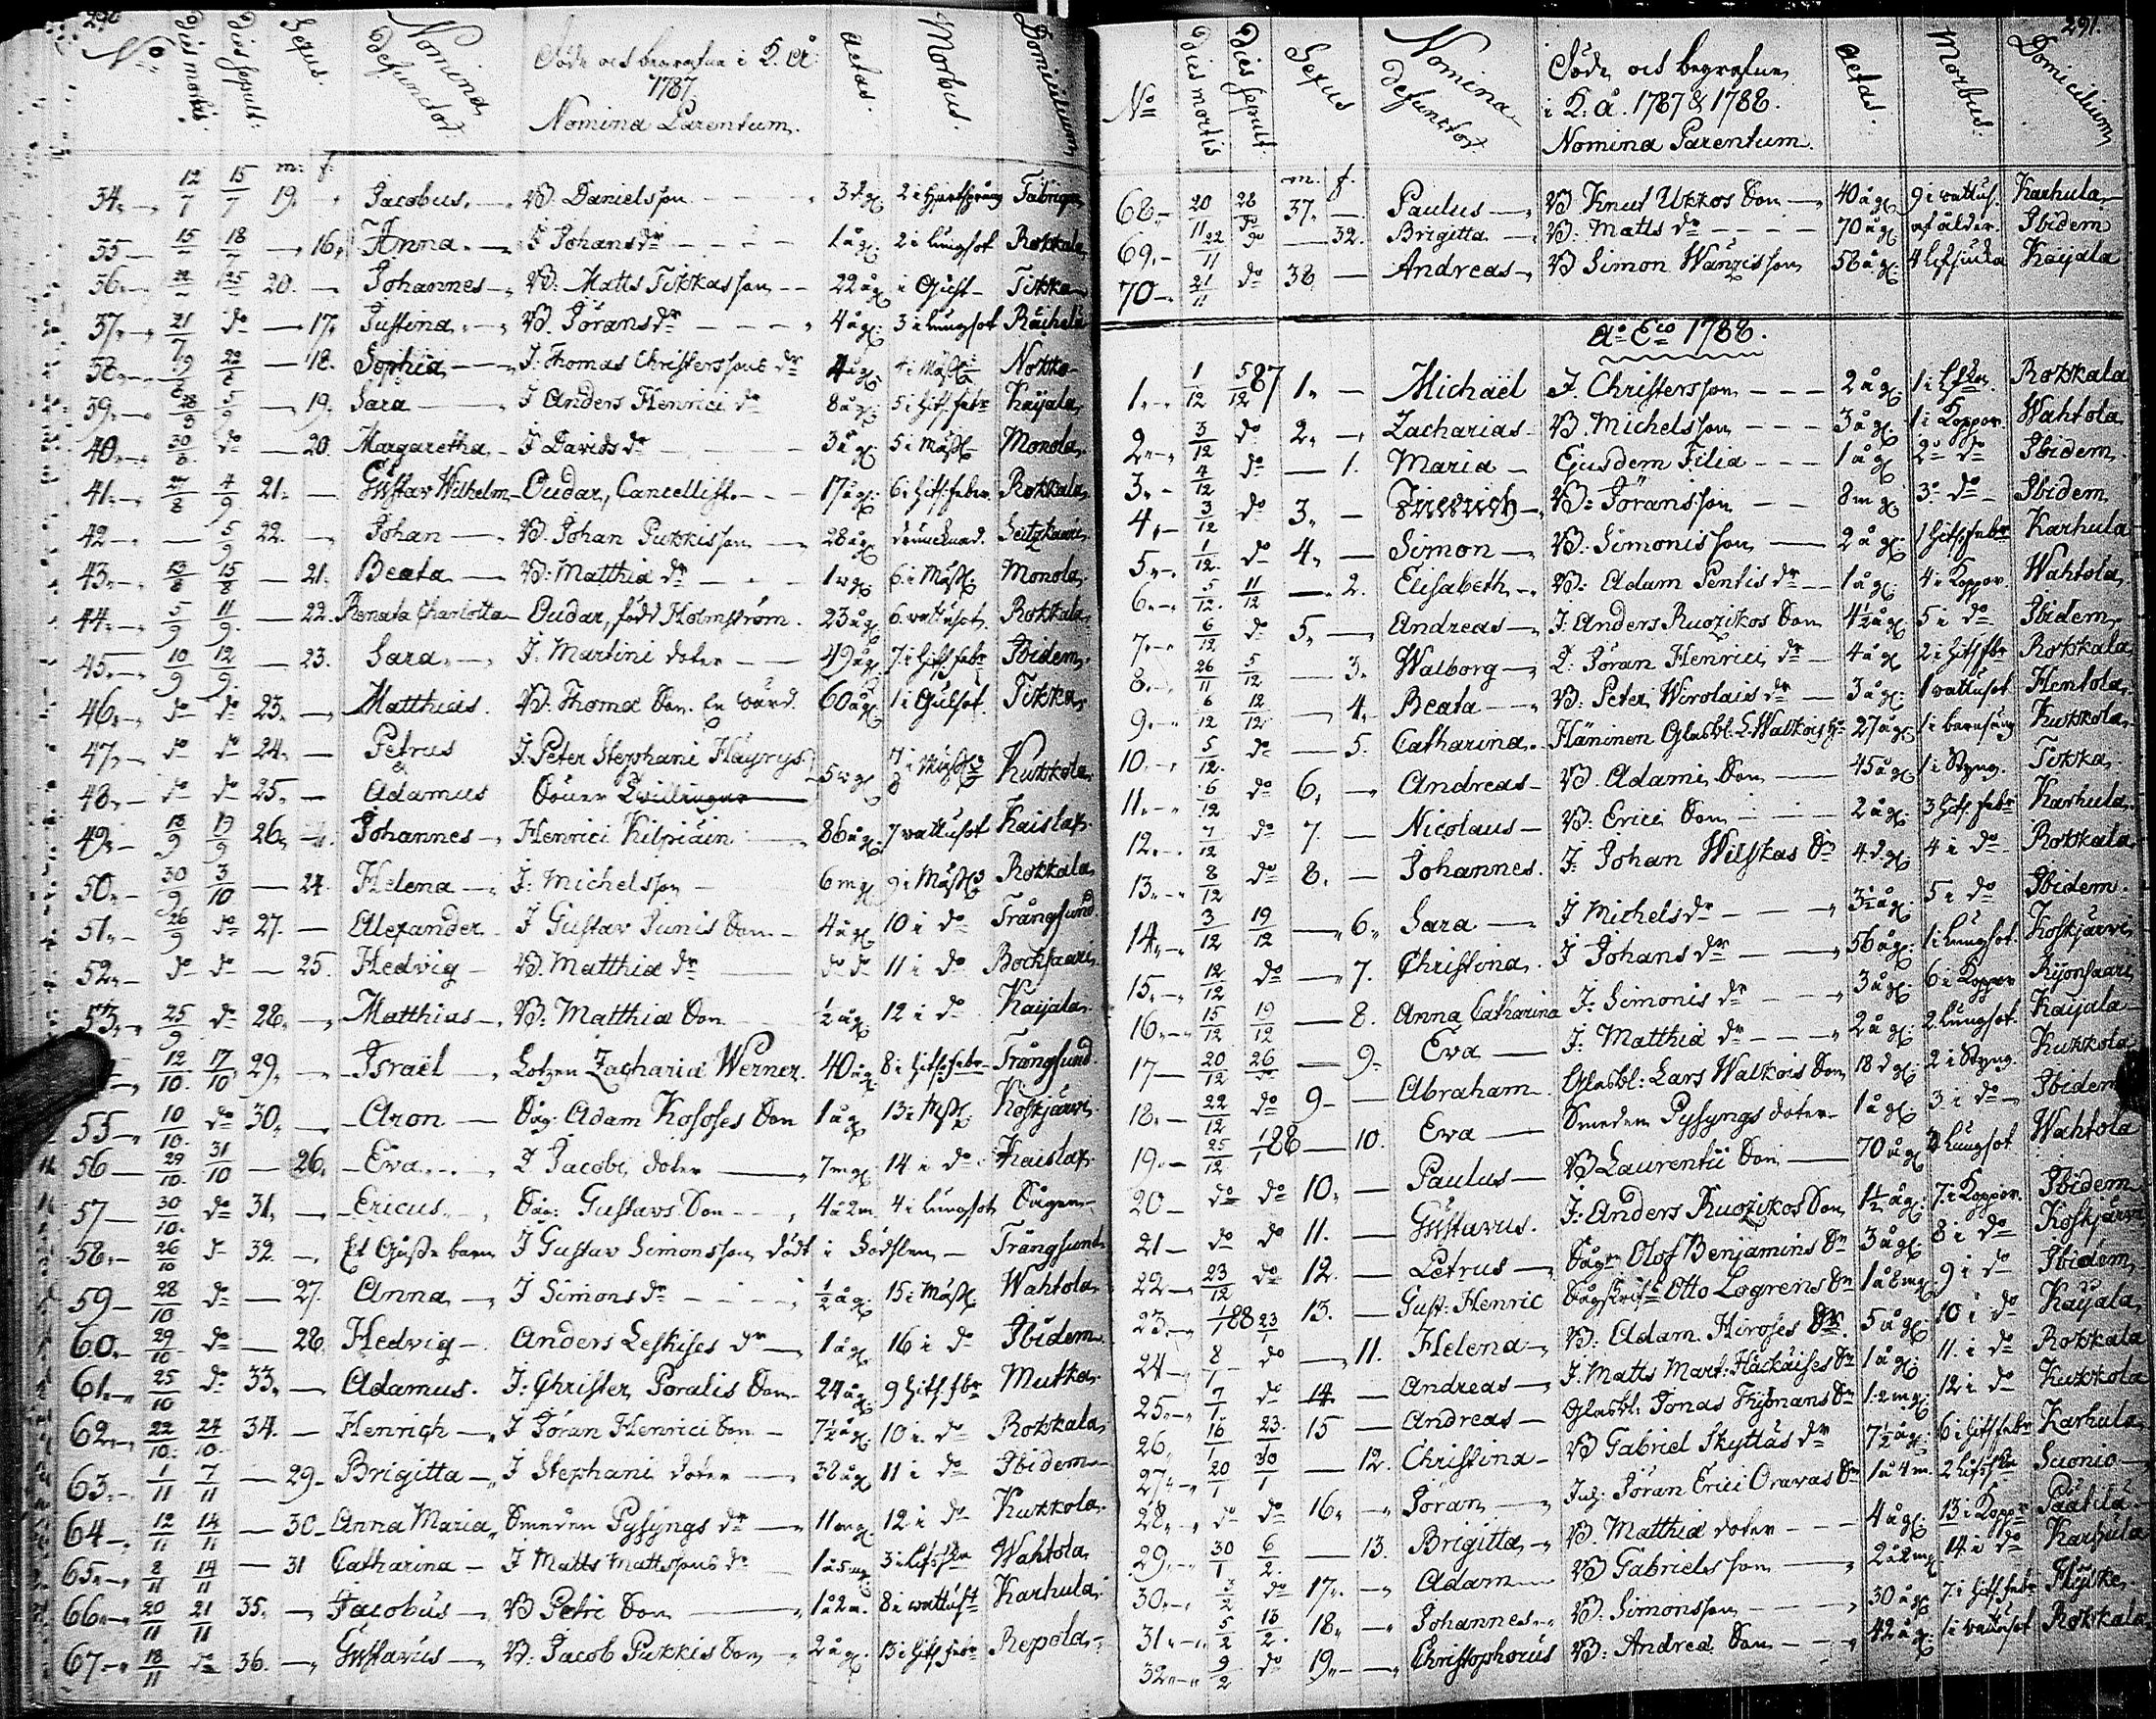 290.
No
Dies mortis.
Dies sepult:
Sexus.
Nomina Defunctor:
Döde och begrafne i K. År
1787.
Nomina Parentum.
aetas.
Morbus.
Domicilium
m: f:
34. 12/7 15/7 19. — Jacobus. B. Danielsson 3 d. gl. 2 i Hartsprång Fabriqen
35 15/7 18/7 — 16. Anna. I Johans dr 1 å gl. 2 i lungsot Rokkala
36. 25/7 20. — Johannes B: Matts Tikkas son 22 å gl. i Gicht Tikka
37. 21/7 do — 17. Justina. B. Jörans dr 4 å gl. 3 i lungsot
38. 19/8 22/8 — 18. Sophia I. Thomas Christerssons dr 4 å gl. 4 i Mäßl. Nokko
39. 28/8 5/9 — 19. Sara I Anders Henrici dr 8 å gl. 5 i hits. febr Kaijala
40. 30/8 do — 20. Margaretha I Davids dr 3 å gl. 5 i Mäßl. Monola
41. 27/8 4/9 21. — Gustav Wilhelm Oudar, Cancellist. 17 å gl. 6 i hits. feber. Rokkala
42 — 5/9 22. Johan B. Johan Pukkis son 28 å gl. drunknad.
43. 13/8 15/8 — 21. Beata B: Matthiæ dr 1 v gl. 6 i Mäßl. Monola
44. 5/9 11/9 — 22. Renata Charlotta Oudar, född Holmström. 23 å gl. 6 vattusot. Rokkala
45. 10/9 12/9 — 23. Sara I. Martini doter 49 å gl. 7 i hits febr Ibidem
46. do do 23. Matthias. B. Thomæ Son. En vård. 60 å gl. 1 i Gulsot. Tikka
47. do do 24. — Petrus I. Peter Stephani Häyrys
&
48. do do 25. — Adamus Söner Twillingar 5 v gl. 7 i Mäßl. 8 Kukkola
49. 18/9 19/9 26. Johannes Henrici Kilpiäin 86 å gl. 7 vattusot Kaislax
50. 30/9 3/10 — 24. Helena I. Michelsson 6 m gl. 9 i Mäßl. Rokkala
51. 26/9 do 27. — Alexander I Gustav Junis Son 4 å gl. 10 i do Trångsund
52. do do — 25. Hedvig B. Matthiæ dr do do 11 i do Bocksaari
53. 25/9 do 28. Matthias B: Matthiæ Son ½ å gl. 12 i do Kaijala
12/10 17/10 29. Israël Lotzen Zachariæ Werner. 40 å gl. 8 i hits febr Trångsund
55 10/10 do 30. Aron Såg: Adam Kososes Son 1 å gl. 13 i Mßl. Koskjärvi
56 29/10 31/10 — 26. Eva I Jacobi doter 7 m gl. 14 i do Kaislax
57 30/10 do 31. Ericus Såg: Gustavs Son 4 å 2 m. 4 i lungsot Sågen
58. 26/10 do 32 Et Gosse barn I Gustav Simonsson dödt i Födslen Trångsund
59 28/10 do — 27. Anna I Simons dr ½ å gl. 15 i Mäßl. Wahtola
60. 29/10 do — 28. Hedvig Anders Leskises dr 1 å gl. 16 i do Ibidem
61. 25/10 do 33. — Adamus. I: Christer Poralis Son 24 å gl. 9 hits. fbr Mutka
62. 22/10 24/10 34. — Henrich I Jöran Henrici Son 7½ å gl. 10 i do Rokkala
63. 1/11 7/11 — 29 Brigitta I Stephani doter 38 å gl. 11 i do Ibidem
64. 12/11 14/11 — 30 Anna Maria Smeden Pysyngs dr 11 m gl. 12 i do Kukkola
65. 8/11 14/11 — 31 Catharina I Matts Mattssons dr 1 å 5 m gl. 3 i Wahtola
66. 20/11 21/11 35. Jacobus B Petri Son 1 å 2 m. 8 i vattust Karhula
67. 18/11 do 36. Gustavus B: Jacob Pukkis Son 2 å gl. 13 i hits febr Repola
291.
No
Dies mortis
Dies sepult:
Sexus
Nomina defunctor:
Döde och begrafne
i K: å. 1787 & 1788.
Nomina Parentum.
aetas.
Morbus.
Domicilium
m. f.
68. 20/11 28 37. — Paulus B Knut Ukkos Son 40 å gl. 9 i vattus. Karhula
69. 22/11 do — 32. Brigitta B: Matts dr 70 å gl. af ålder. Ibidem
70 21/11 do 38 — Andreas B Simon Wanzisson 58 å gl. 4 Kaijala
Ao Eco 1788.
1. 1/12 5/12 87 1. — Michaël I. Christersson 2 å gl. 1 i Rokkala
2. 3/12 do 2. Zacharias B. Michelsson 3 å gl. 1 i Koppor. Wahtola
3. 4/12 do — 1. Maria Ejusdem Filia 1 å gl. 2 do Ibidem
4. 3/12 do 3. — Friedrich B: Jöransson 8 m gl. 3 do Ibidem
5. 1/12. do 4. — Simon B. Simonis son 2 å gl. 1 hitsfebr Karhula
6. 5/12. 11/12 — 2. Elisabeth B: Adam Pentis dr 1 å gl. 4 i Koppor. Wahtola
7. 6/12 do 5. Andreas I. Anders Ruozikos Son 4½ å gl. 5 i do Ibidem
8. 26/11 5/12 — 3. Walborg I: Jöran Henrici dr 4 å gl. 2 i hits fbr Rokkala
9. 6/12 12/12 — 4. Beata B: Peter Wirolais dr 3 å gl. 1 vattusot Hentola
10. 5/12. do — 5. Catharina. Häninen Glasbl. L. Walkois 27 å gl. 1 i barnsäng Kukkola
11. 6/12 do 6. Andreas B. Adami Son 45 å gl. 1 i Styng. Tikka
12. 7/12 do 7. — Nicolaus B: Erici Son 2 å gl. 3 hits. febr Karhula
13. 8/12 do 8. — Johannes. I: Johan Wilskas Sn 4 d gl. 4 i do Rokkala
14. 3/12 19/12 — 6. Sara I Michels dr 3½ å gl. 5 i do Ibidem
15. 12/12 do — 7. Christina. I Johans dr 56 å gl. 1 i lungsot. Koskjärvi
16. 15/12 19/12 — 8. Anna Catharina I. Simonis dr 3 å gl. 6 i Koppor Rijonsaari
17 20/12 26/do — 9 Eva I: Matthiæ dr 2 å gl. 2 lungsot. Kaijala
18. 22/12 do 9 — Abraham Glasbl: Lars Walkois Son 18 d gl. 2 i Styng. Kukkola
19. 25/12 1/1 88 — 10. Ewa Smeden Pysyngs doter 1 å gl. 3 i do Ibidem
20 do do 10. — Paulus B Laurentii Son 70 å gl. lungsot Wahtola
21 do do 11. — Gustavus. I: Anders Ruozikos Son 1½ å gl. 7 i Koppor. Ibidem
22 23/12 do 12. Petrus Sågr Olof Benjamins Sn 3 å gl. 8 i do Koskjärvi
23. 1/1 88 23/1 13. — Gust: Henric Sågskrifr Otto Logrens Sn 1 å 8 m gl. 9 i do Ibidem
24 8/1 do — 11. Helena B: Adam Hiroses Dr. 5 å gl. 10 i do Kaijala
25. 7/1 do 14 — Andreas I. Matts Mart: Häckäises Sn 1 å gl. 11. i do Rokkala
26. 16/1 23/1 15 — Andreas Glasbl: Jonas Thynans Sn 1. 2 m gl. 12 i do Kukkola
27. 20/1 30/1 — 12. Christina B Gabriel Skyttäs dr 7½ å gl. 6 i hits febr Karhula
28. do do 16. Jöran Jöran Erici Oravas Sn 1 å 4 m. 2 Suonio
29. 30/1 6/2. — 13. Brigitta B. Matthiæ doter 4 å gl. 13 i Koppr Päätilä
30. 3/2 do 17. Adam B Gabrielsson 2 å 2 m gl. 14 i do Karhula
31. 5/2 13/2. 18. Johannes B: Simonsson 30 å gl. 7 i hits febr
32. 9/2 do 19. Christophorus B: Andreæ Son 42 å gl. 1 i vattusot Rokkala